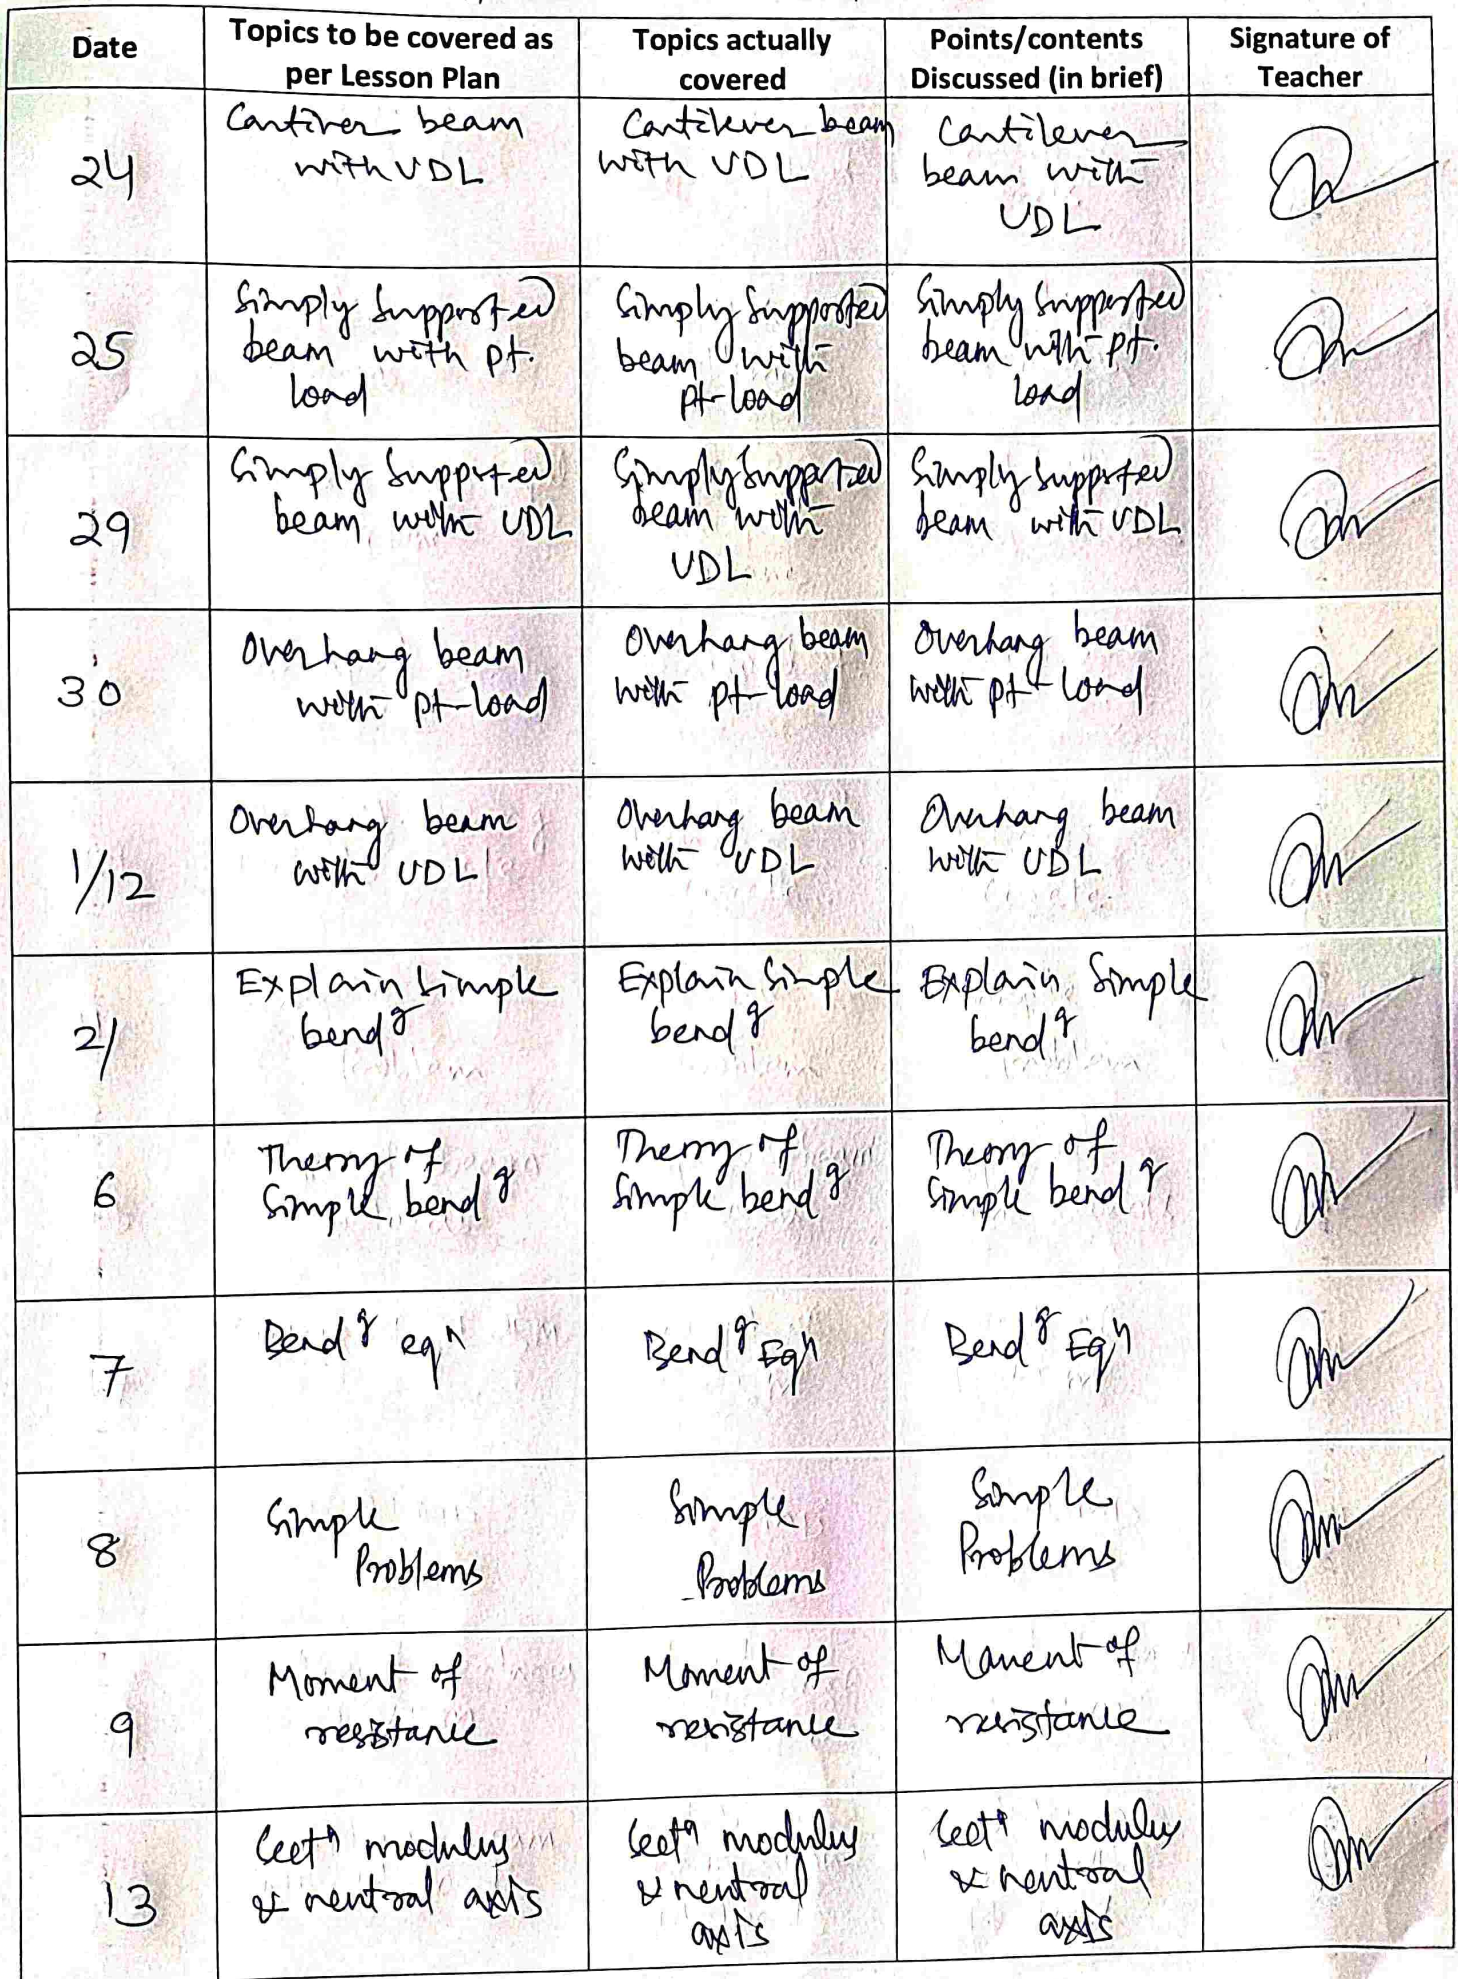 Date
Topics to be covered as
per Lesson Plan
Topics actually
covered
Points/contents
Discussed (in brief)
Signature of
Teacher
24
Cantiver beam
with UDL
Cantilever beam
with UDL
Cantilever
beam with
UDL
25
Simply Supported
beam with pt.
load
Simply Supported
beam with
pt-load
Simply Supported
beam with pt.
load
29
Simply Supported
beam with UDL
Simply Supported
beam with
UDL
Simply Supported
beam with UDL
30
Overhang beam
with pt-load
Overhang beam
with pt-load
Overhang beam
with pt-load
1/12
Overhang beam
with UDL
Overhang beam
with UDL
Overhang beam
with UDL
2/
Explain Simple
bend g
Explain Simple
bend g
Explain Simple
bend g
6
Theory of
Simple bend g
Theory of
Simple bend g
Theory of
Simple bend g
7
Bend g eqn
Bend g Eqn
Bend g Eqn
8
Simple
Problems
Simple
Problems
Simple
Problems
9
Moment of
resistance
Moment of
resistance
Moment of
resistance
13
Sectn modulus
& neutral axis
Sectn modulus
& neutral
axis
Sectn modulus
& neutral
axis